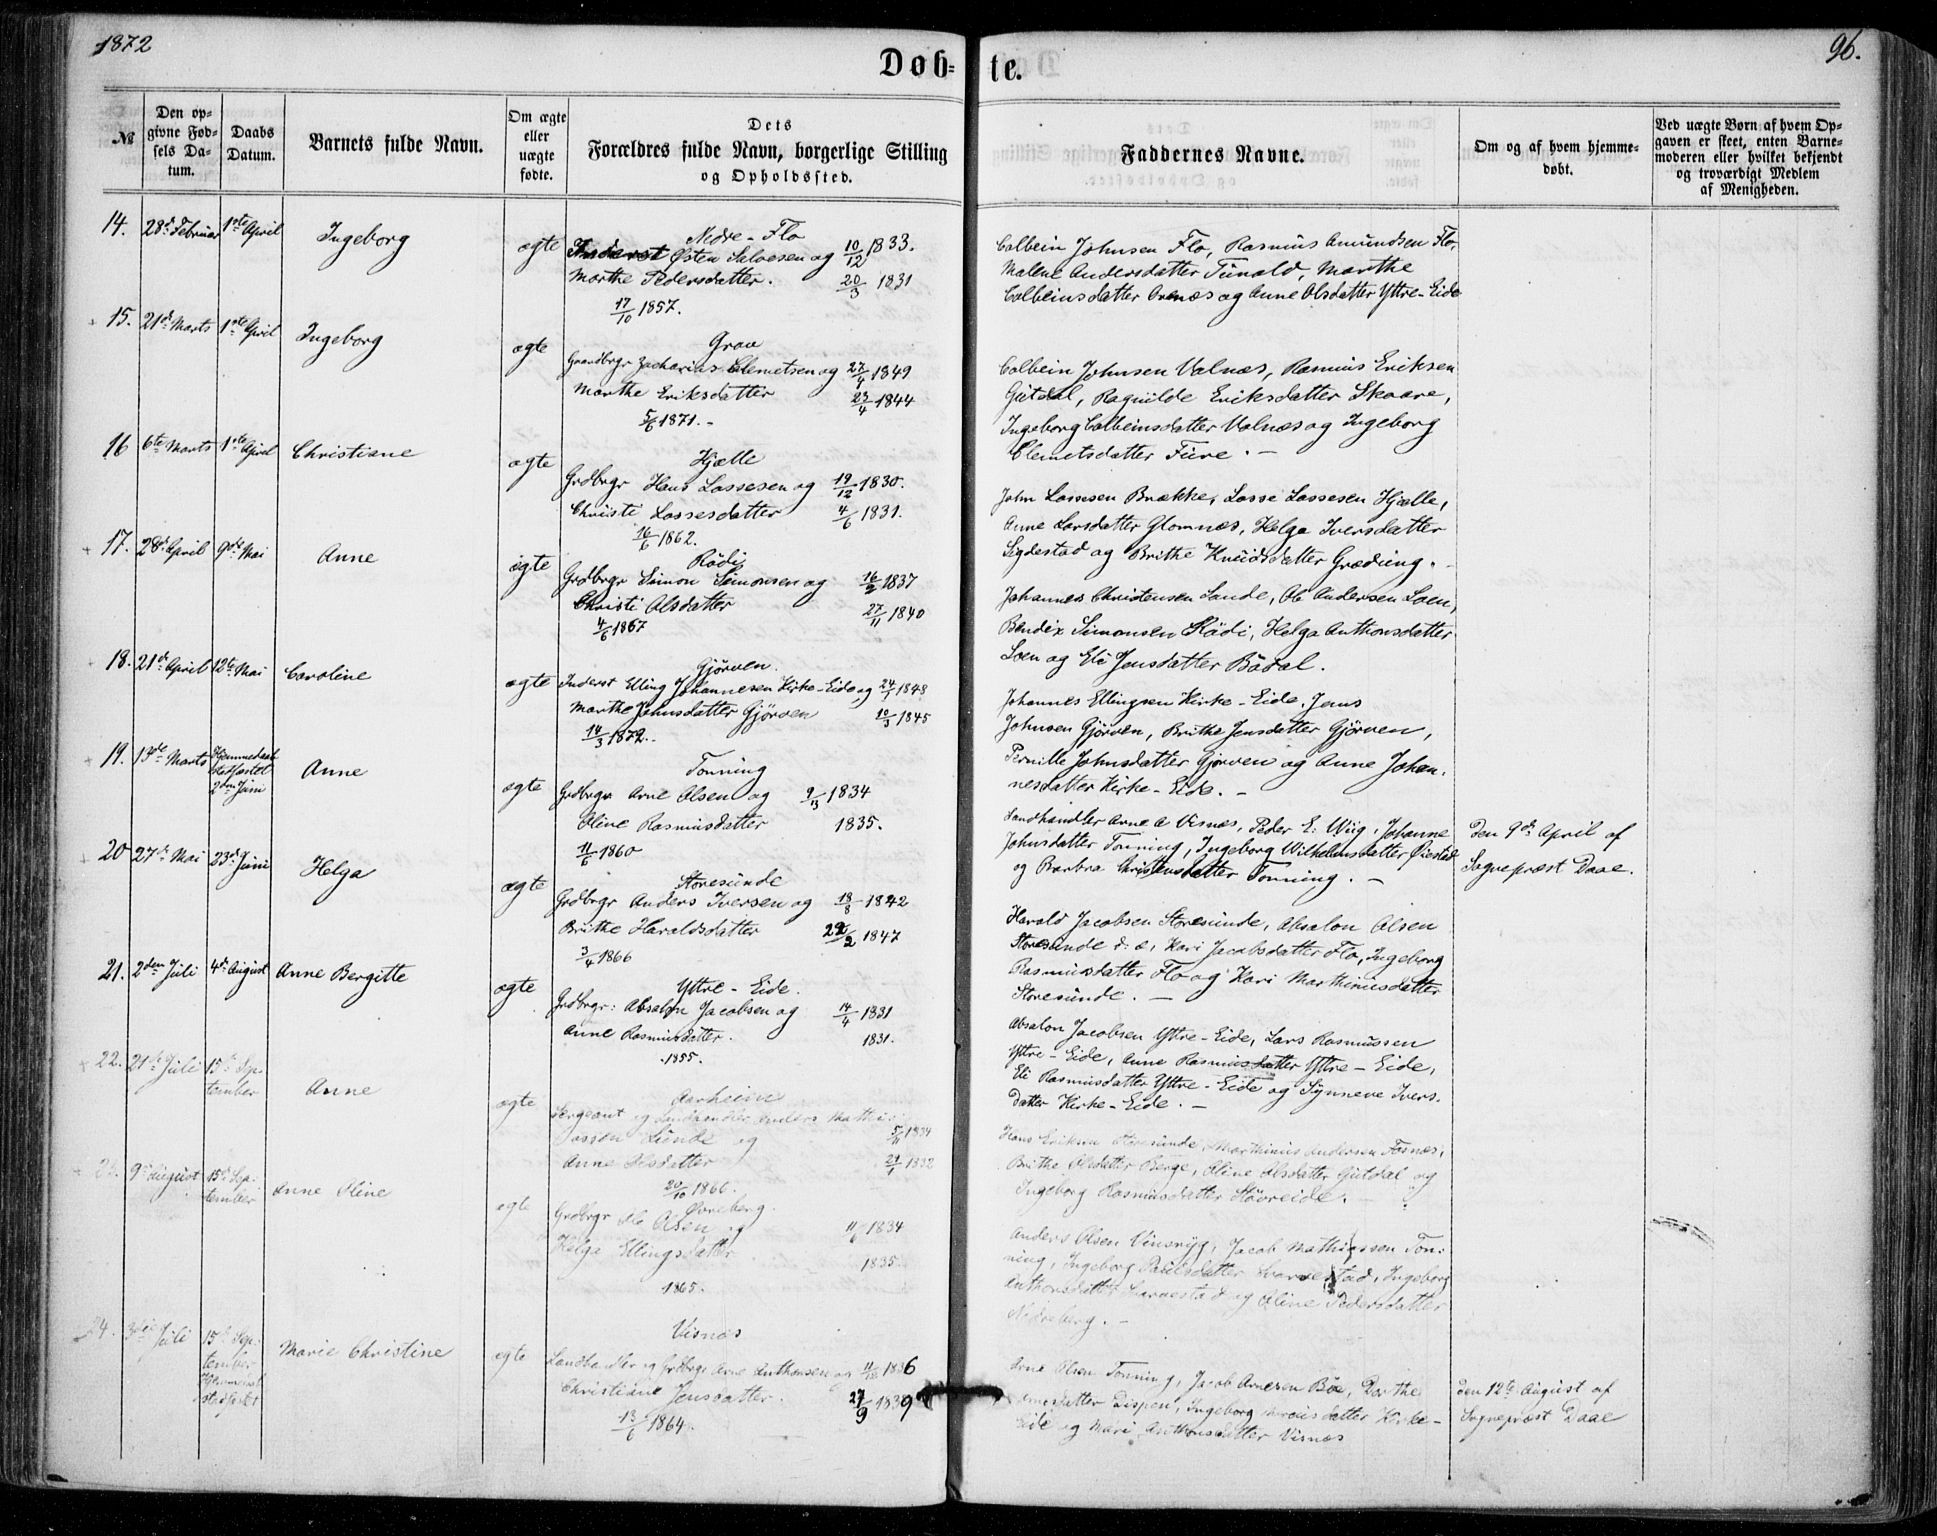 1872
96.
Døb=te.
№
Den op=
givne Fød=
sels Da=
tum.
Daabs
Datum.
Barnets fulde Navn.
Om ægte
eller
uægte
fødte.
Dets
Forældres fulde Navn, borgerlige Stilling
og Opholdssted.
Faddernes Navne.
Om og af hvem hjemme=
døbt.
Ved uægte Børn af hvem Op=
gaven er skeet, enten Barne=
moderen eller hvilket bekjendt
og troværdigt Medlem
af Menigheden.
14. 28de Februar 1ste April Ingeborg ægte
Nedre-Flo
Østen Salvesen og 10/12 1833.
Marthe Pedersdatter. 20/3 1831
17/10 1857.
Colbein Johnsen Flo, Rasmus Amundsen Flo,
Malene Andersdatter Tunold, Marthe
Colbeinsdatter Arnæs og Anne Olsdatter Yttre-Eide
15. 21de Marts 1ste April Ingeborg ægte
Grov
Zacharias Clemetsen og 27/4 1849
Marthe Eriksdatter 23/4 1844
5/6 1871.-
Colbein Johnsen Valnæs, Rasmus Eriksen
Gutdal, Ragnilde Eriksdatter Skaare,
Ingeborg Colbeinsdatter Valnæs og Ingeborg
Clemetsdatter Fure. -
16 6te Marts 1ste April Christiane ægte
Hjælle
Grdbrgr Hans Lassesen og 19/12 1830.
Christi Lassesdatter 4/6 1831.
16/6 1862.
John Lassesen Brække, Lasse Lassesen Hjælle,
Anne Larsdatter Glomnæs, Helga Iversdatter
Sigdestad og Brithe Knudsdatter Græding. -
17. 28de April 9de Mai Anne ægte
Rødi
Grdbrgr Simon Simonsen og 16/2 1837
Christi Olsdatter 27/11 1840
4/6 1867
Johannes Christensen Sande, Ole Andersen Loen,
Bendix Simonsen Rødi, Helga Anthonsdatter
Loen og Eli Jensdatter Bødal.
18. 21de April 12te Mai Caroline ægte
Gjørven.
Inderst Elling Johannesen Kirke-Eide og 24/1 1848
Marthe Johnsdatter Gjørven 10/3 1845
14/3 1872.
Johannes Ellingsen Kirke-Eide, Jens
Johnsen Gjørven, Brithe Jensdatter Gjørven,
Pernille Johnsdatter Gjørven og Anne Johan-
nesdatter Kirke-Eide. -
19. 13de Marts Hjemmedaab
stadfæstet
2den Juni Anne ægte
Tonning
Grdbrgr Arne Olsen og 1834
Oline Rasmusdatter 1835.
11/6 1860
Landhandler Arne A Visnæs, Peder E. Wiig, Johanne
Johnsdatter Tonning, Ingeborg Wilhelmsdatter Øiestad
og Barbra Christensdatter Tonning. -
Den 9de April af
Sognepræst Daae.
20 27de Mai 23de Juni Helga ægte
Storesunde
Grdbrgr Anders Iversen og 18/8 1842
Brithe Haraldsdatter 1847
3/4 1866
Harald Jacobsen Storesunde, Absalon Olsen
Storesunde d: æ, Kari Jacobsdatter Flo, Ingeborg
Rasmusdatter Flo og Kari Marthinusdatter
Storesunde. -
21. 2den Juli 4de August Anne Bergitte ægte
Yttre-Eide.
Grdbrgr: Absalon Jacobsen og 14/4 1831
Anne Rasmusdatter. 1831.
1855.
Absalon Jacobsen Yttre-Eide, Lars Rasmussen
Yttre-Eide, Anne Rasmusdatter Yttre-Eide,
Eli Rasmusdatter Yttre-Eide og Synneve Ivers-
datter Kirke-Eide. -
22. 21de Juli 15de Sep-
tember Anne ægte
Aarheim
Sergeant og Landhandler Anders Mathi-
assen Lunde og 1834
Anne Olsdatter 1832
20/10 1866.
Hans Eriksen Storesunde, Marthinus Andersen Fosnæs,
Brithe Olsdatter Berge, Oline Olsdatter Gutdal og
Ingeborg Rasmusdatter Støvreide. -
23. 9de August 15de Sep-
tember Anne Oline ægte
Øvreberg.
Grdbrgr Ole Olsen og 1834
Helga Ellingsdatter 1835.
1865.
Anders Olsen Vinsryg, Jacob Mathiassen Ton-
ning, Ingeborg Paulsdatter, Ingeborg
Anthonsdatter og Oline Pedersdatter
Nedreberg. -
24. 3die Juli 15de Sep-
tember
Hjemmed.
stadfæstet Marie Christine ægte
Visnæs
Landhandler og Grdbrgr Arne Anthonsen og 11/12 1836
Christiane Jensdatter. 27/9 1839
13/6 1864.
Arne Olsen Tonning, Jacob Arnesen Bøe, Dorthe
Eide og Mari Anthonsdatter Visnæs
Den 12te August af
Sognepræst Daae